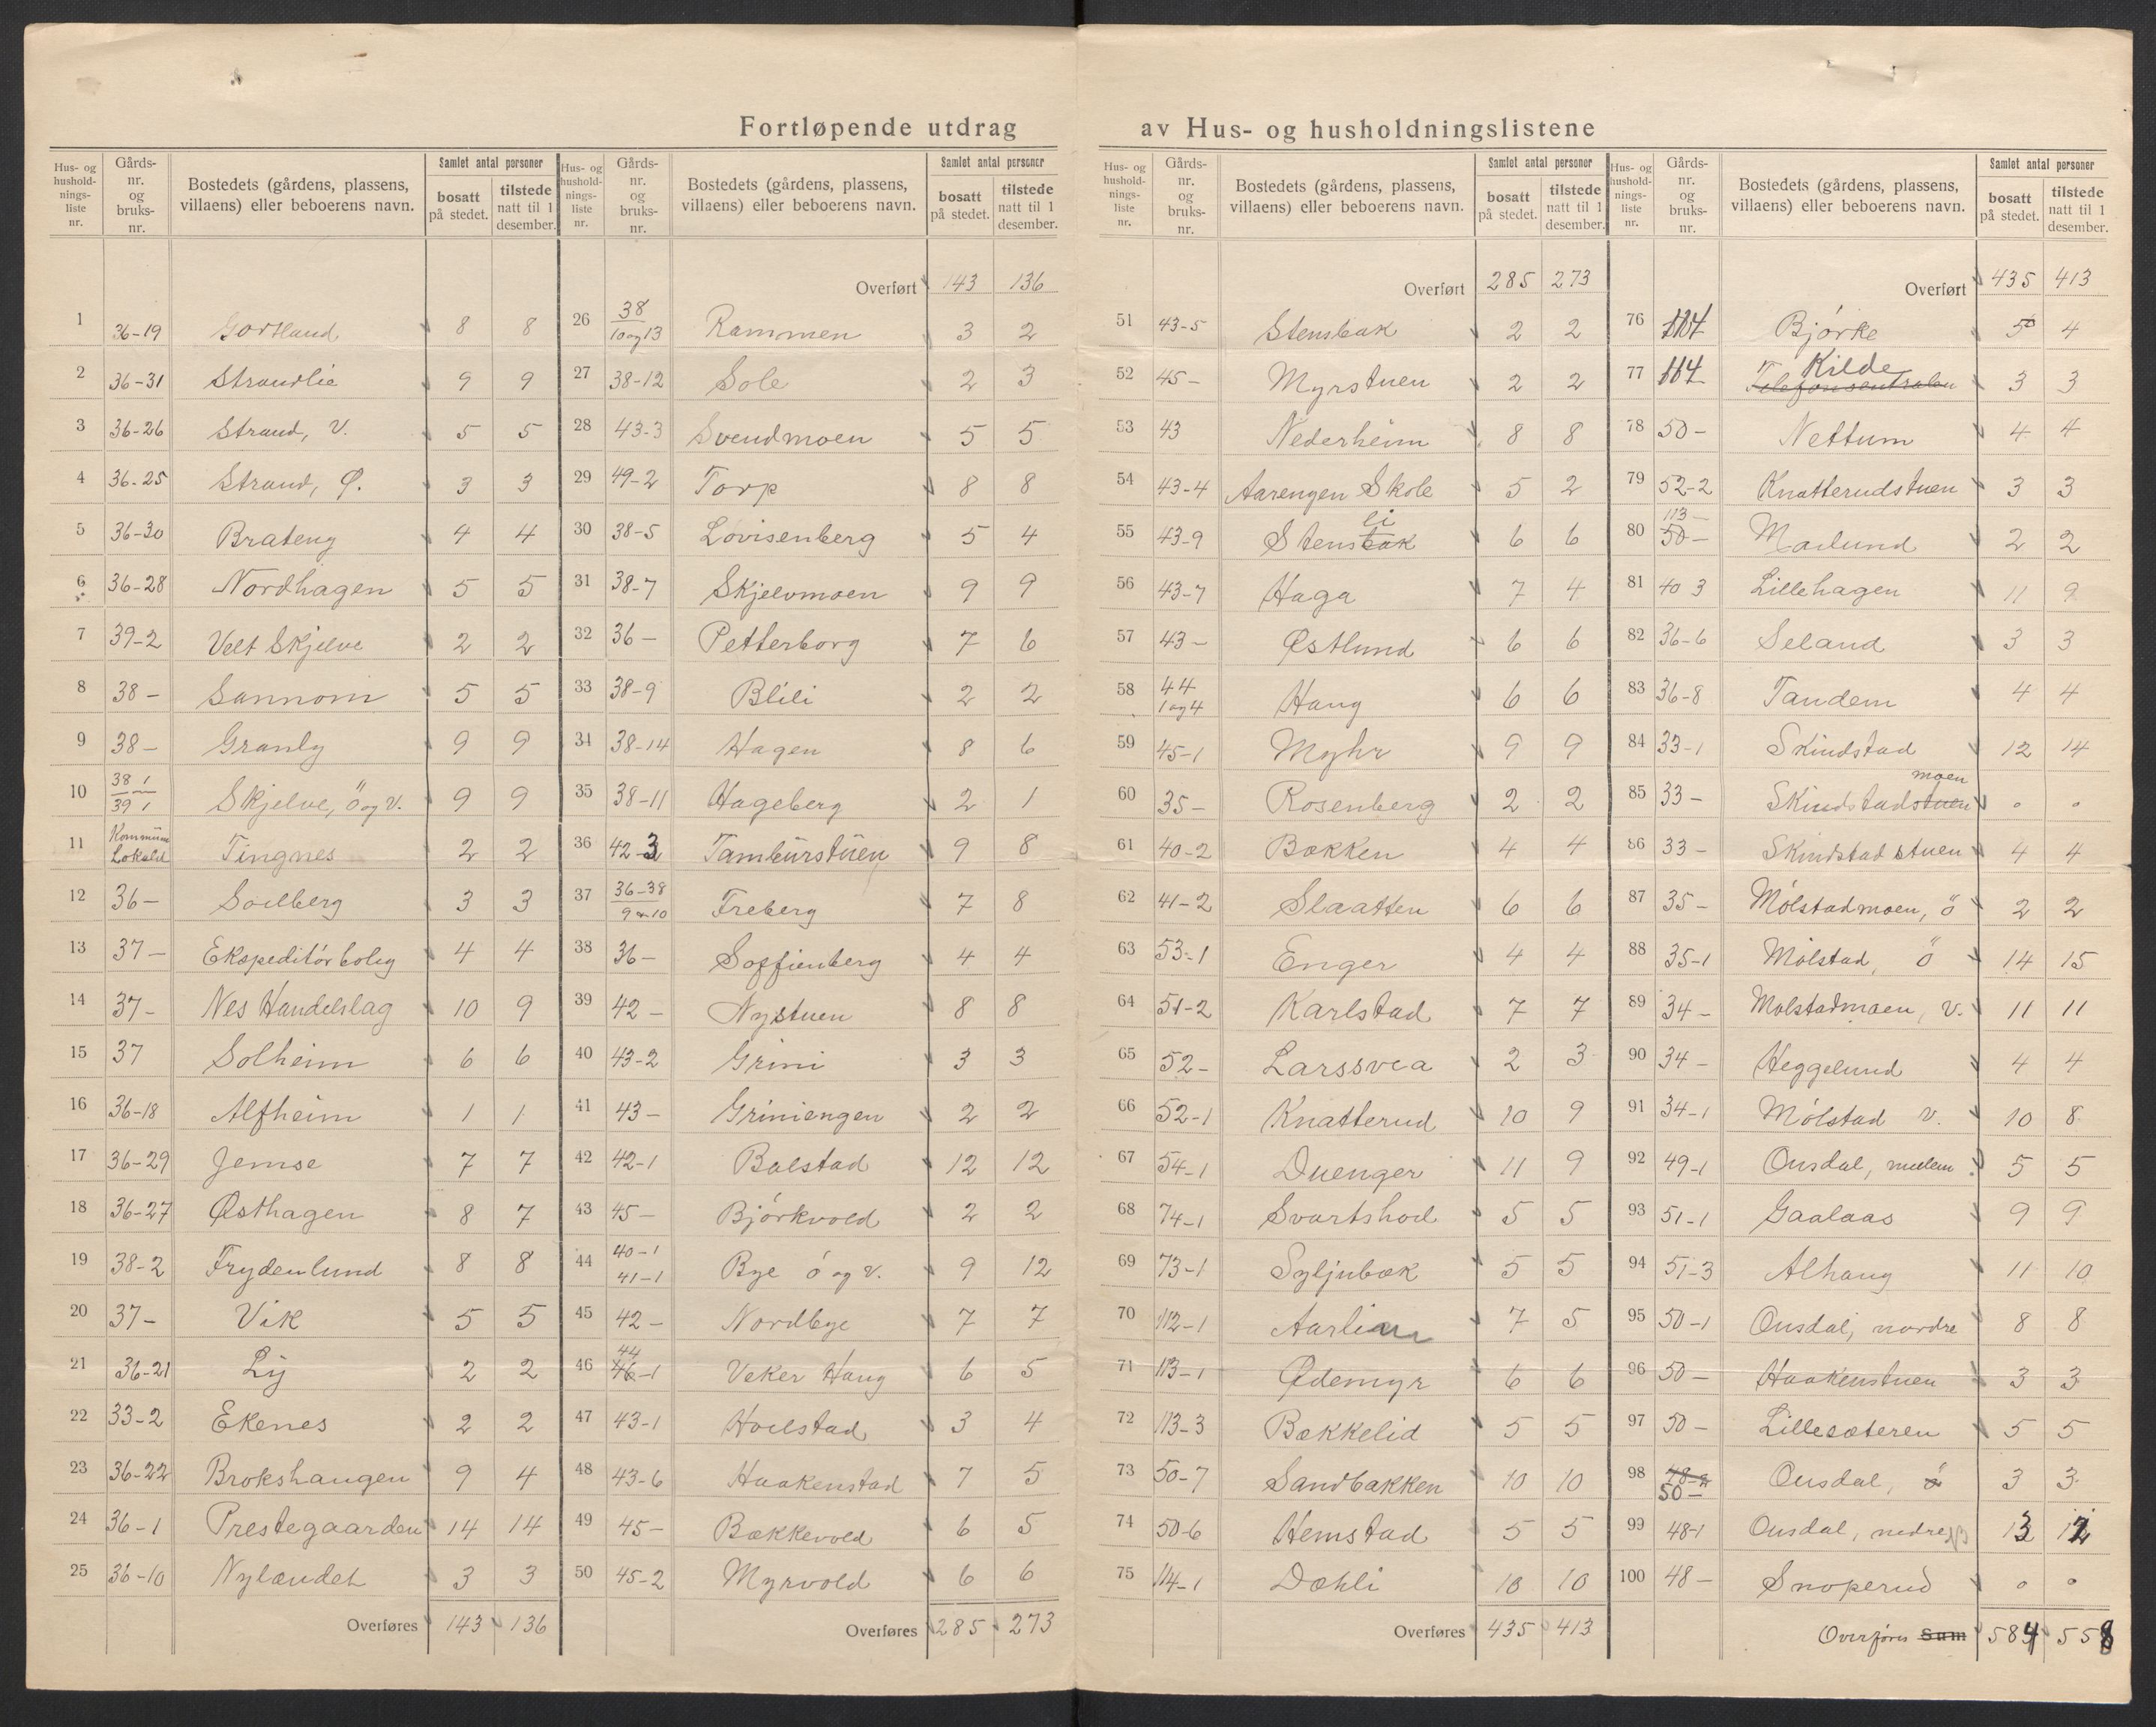 Fortløpende utdrag av Hus- og husholdningslistene
Hus- og hushold-nings-liste nr. | Gårds-nr. og bruks-nr. | Bostedets (gårdens, plassens, villaens) eller beboerens navn. | Samlet antal personer | bosatt på stedet. | tilstede natt til 1 desember.
1 36-19 Gortland 8 8
2 36-31 Strandlie 9 9
3 36-26 Strand, V. 5 5
4 36-25 Strand, Ø. 3 3
5 36-30 Brateng 4 4
6 36-28 Nordhagen 5 5
7 39-2 Velt Skjelve 2 2
8 38- Sannom 5 5
9 38- Granly 9 9
10 38 1 39 1 Skjelve, ö og v. 9 9
11 Kommune Lokalet Tingnes 2 2
12 36- Solberg 3 3
13 37- Ekspeditørbolig 4 4
14 37- Nes Handelslag 10 9
15 37 Solheim 6 6
16 36-18 Alfheim 1 1
17 36-29 Jemse 7 7
18 36-27 Østhagen 8 7
19 38-2 Frydenlund 8 8
20 37- Vik 5 5
21 36-21 Ly 2 2
22 33-2 Ekenes 2 2
23 36-22 Brokshaugen 9 4
24 36-1 Prestegaarden 14 14
25 36-10 Nylændet 3 3
Overføres 143 136
Hus- og hushold-nings-liste nr. | Gårds-nr. og bruks-nr. | Bostedets (gårdens, plassens, villaens) eller beboerens navn. | Samlet antal personer | bosatt på stedet. | tilstede natt til 1 desember.
Overført 143 136
26 38 10 og 13 Rammen 3 2
27 38-12 Sole 2 3
28 43-3 Svendmoen 5 5
29 49-2 Torp 8 8
30 38-5 Lovisenberg 5 4
31 38-7 Skjelvmoen 9 9
32 36- Petterborg 7 6
33 38-9 Blili 2 2
34 38-14 Hagen 8 6
35 38-11 Hageberg 2 1
36 42-3 Tamburstuen 9 8
37 36-38 9 10 Freberg 7 8
38 36- Soffienberg 4 4
39 42- Nystuen 8 8
40 43-2 Grini 3 3
41 43- Griniengen 2 2
42 42-1 Balstad 12 12
43 45- Bjørkvold 2 2
44 40-1 41-1 Bye ö og v. 9 12
45 42- Nordbye 7 7
46 44 46-1 Veker Haug 6 5
47 43-1 Hoelstad 3 4
48 43-6 Haakenstad 7 5
49 45- Bækkevold 6 5
50 45-2 Myrvold 6 6
Overføres 285 273
Hus- og hushold-nings-liste nr. | Gårds-nr. og bruks-nr. | Bostedets (gårdens, plassens, villaens) eller beboerens navn. | Samlet antal personer | bosatt på stedet. | tilstede natt til 1 desember.
Overført 285 273
51 43-5 Stensbak 2 2
52 45- Myrstuen 2 2
53 43 Nederheim 8 8
54 43-4 Aarengen Skole 5 2
55 43-9 Stensbak li 6 6
56 43-7 Haga 7 4
57 43- Østlund 6 6
58 44 1 og 4 Haug 6 6
59 45-1 Myhr 9 9
60 35- Rosenberg 2 2
61 40-2 Bakken 4 4
62 41-2 Slaatten 6 6
63 53-1 Enger 4 4
64 51-2 Karlstad 7 7
65 52- Larssvea 2 3
66 52-1 Knatterud 10 9
67 54-1 Duenger 11 9
68 74-1 Svartshod 5 5
69 73-1 Syljubæk 5 5
70 112-1 Aarlien 7 5
71 113-1 Ødemyr 6 6
72 113-3 Bækkelid 5 5
73 50-7 Sandbakken 10 10
74 50-6 Hemstad 5 5
75 114-1 Dæhli 10 10
Overføres 435 413
Hus- og hushold-nings-liste nr. | Gårds-nr. og bruks-nr. | Bostedets (gårdens, plassens, villaens) eller beboerens navn. | Samlet antal personer | bosatt på stedet. | tilstede natt til 1 desember.
Overført 435 413
76 114 Bjørke 5 4
77 114- Telefonsentralen Kilde 3 3
78 50- Nettum 4 4
79 52-2 Knatterudstuen 3 3
80 113- 50- Maelund 2 2
81 40 3 Lillehagen 11 9
82 36-6 Seland 3 3
83 36-8 Tandem 4 4
84 33-1 Skindstad 12 14
85 33- Skindstadstuen moen 0 0
86 33- Skindstad stuen 4 4
87 35- Mølstadmoen, ö 2 2
88 35-1 Mølstad, ö 14 15
89 34- Mølstadmoen, v. 11 11
90 34- Heggelund 4 4
91 34-1 Mølstad v. 10 8
92 49-1 Onsdal, mellem 5 5
93 51-1 Gaalaas 9 9
94 51-3 Alhaug 11 10
95 50-1 Onsdal, nordre 8 8
96 50- Haakenstuen 3 3
97 50- Lillesæteren 5 5
98 48-2 50- Onsdal, ö 3 3
99 48-1 Onsdal, nedre 13 12
100 48- Snoperud 0 0
Overføres Sum 584 558